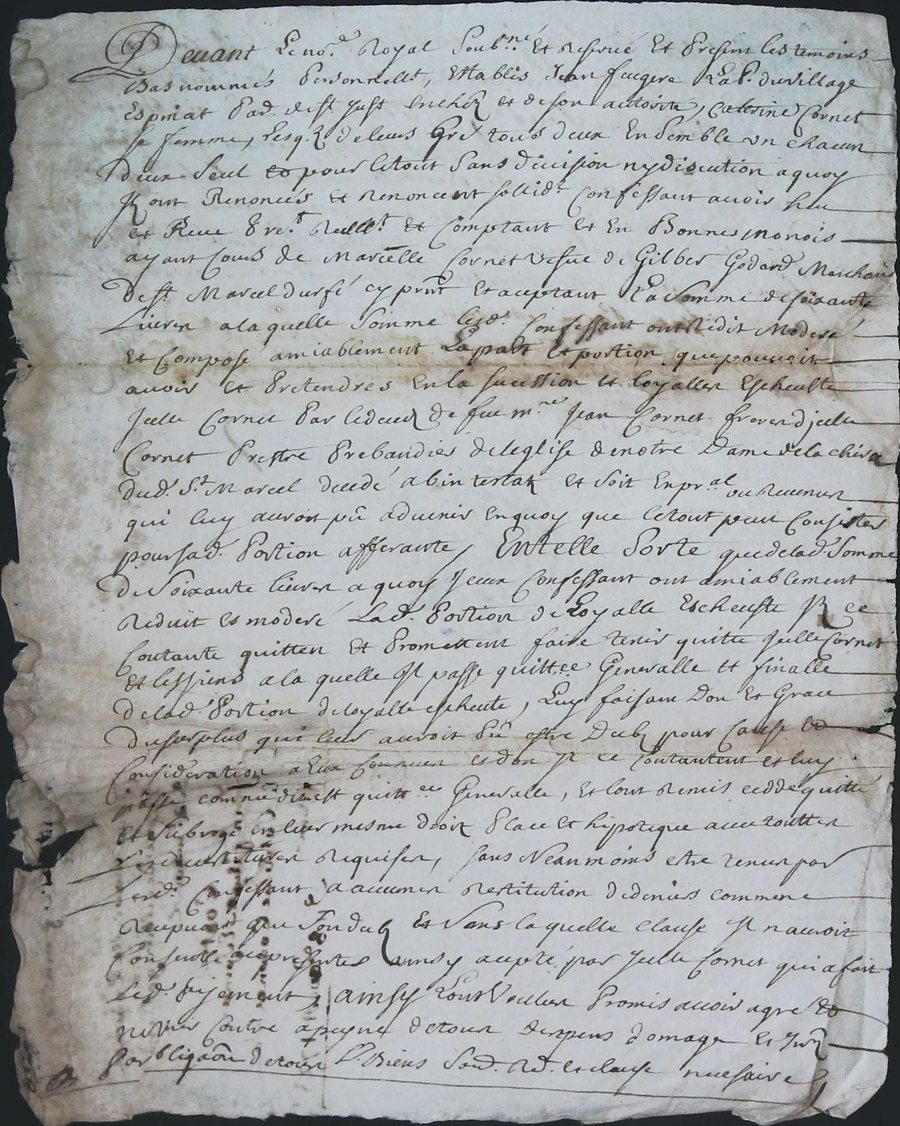 Devant Le no.re Royal Soub.né Et Reservé Et Presens les temoins
Bas nommés Personnellt, Establis Jean faugere Lab.r du village
Espinat Par. de St Just en cher et de son autorite, Caterine Cornet
se femme, lesq.z de leurs Gré tous deux Ensemble un chacun
deux seul et pour letout Sans division ny discution a quoy
Jl ont Renoncés et Renoncent sollidt Confessant avoir heu
et Receu reellt Et Comptant Et En Bonnes monois
ayant Cours de Marcelle Cornet vefue de Gilber Godard Marchand
de St Marcel durfé cy pnt Et aceptant La Somme de soixante
Livres a la quelle Somme lesd. Confessant ont Redit Moderé
Et Composé amiablement La part Et portion que pouvoit
avoir et Pretendres En la sucession et loyalle Escheutte
Jcelle Cornet Par le decez de feu m.re Jean Cornet frere d'jcelle
Cornet Prestre Prebandier de leglise de notre Dame de la chira
dud. St Marcel decedé abintestat et soit En pr.al ou Revenus
qui luy auroit pû advenir En quoy que letout peut Consister
pour sad. Portion afferante, En telle Sorte que de lad. Somme
de Soixante livres a quoy Jceux Confessant ont amiablement
Reduit et moderé Lad. Portion de Loyalle Escheutte Jl ce
Contante quitten et Promettent faire tenir quitte Jcelle Cornet
Et les siens a la quelle Jl passe quitt.ce Generalle et finalle
de lad. Portion de loyalle escheute, Luy faisant Don Et Grace
du surplus que leur auroit pû estre Dub pour Cause Et
Consideration a Eux Connues et don Jl ce Contantent et luy
passe comme dit est quitt.ce Generalle, et lont Remis cedde quitté
et Subrogé En leur mesme droit Place et hipoteque avec toutter
Requises, sans Neanmoins estre tenus par
Lesd. Confessant a aucunes Restitution de deniers comme
Et Sans la quelle Clause Jl nauroit
Consenty au presentes ainsy acepté par Jcelle Cornet qui a fait
Led. Payement, ainsy Lont Voulus Promis avoir agre Et
ne venir Contre a peyne de tous despens domage Et
Par bligaon de tous Ls Biens Soub. Ad. et clause necessaire